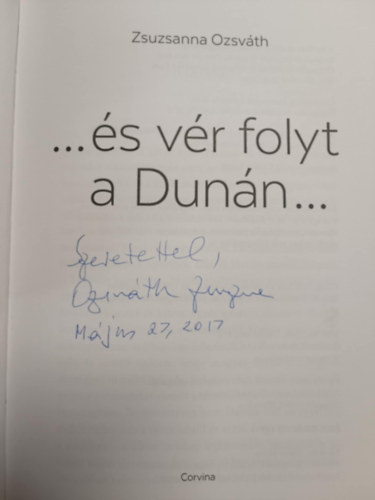 Zsuzsanna Ozsváth
...és vér folyt
a Dunán...
Szeretettel,
Ozsváth Zsuzsa
Május 27, 2017
Corvina